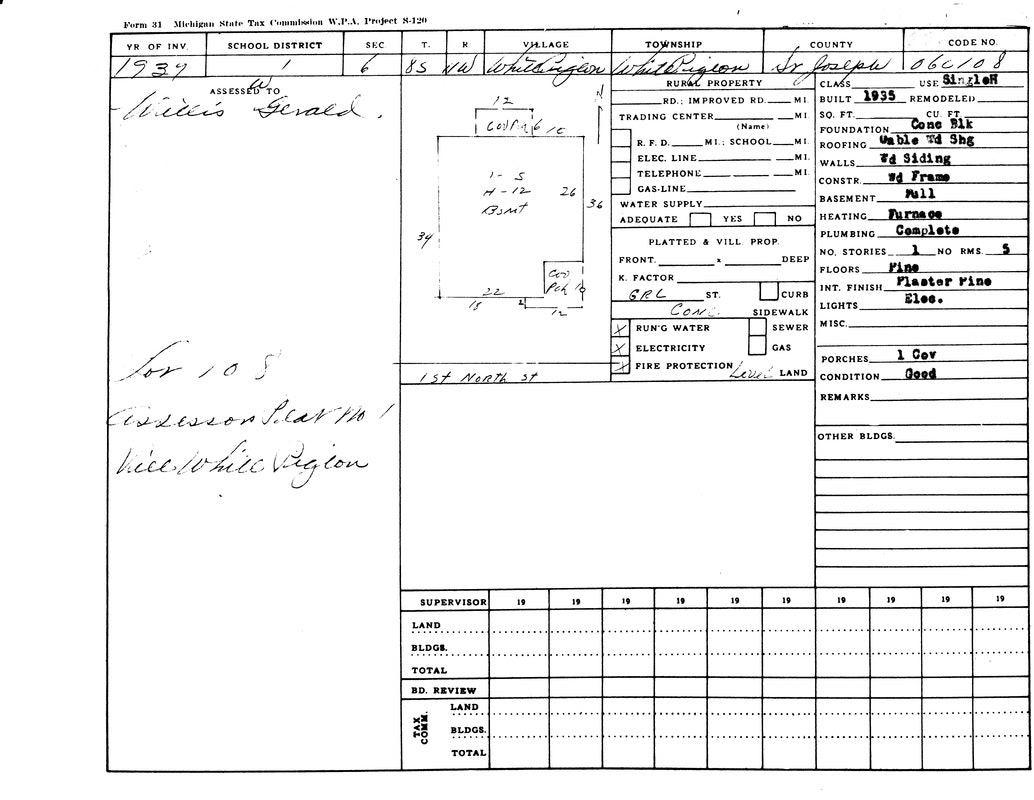 Form 31 Michigan State Tax Commission W.P.A. Project S-120
YR OF INV. SCHOOL DISTRICT SEC T. R VILLAGE TOWNSHIP COUNTY CODE NO.
1939 1 6 8S 11W White Pigeon White Pigeon St Joseph 06C108
ASSESSED TO
Willis Gerald W
Lot 108
Assessors Plat No 1
Vill White Pigeon
12
Cov Pch 6 10
N
1-S
H-12
Bsmt
26
36
34
Cov
Pch 10
22
18 2 12
1st North St
RURAL PROPERTY
RD.; IMPROVED RD. MI.
TRADING CENTER MI.
(Name)
R. F. D. MI.; SCHOOL MI.
ELEC. LINE MI.
TELEPHONE MI.
GAS-LINE
WATER SUPPLY
ADEQUATE YES NO
PLATTED & VILL. PROP.
FRONT. x DEEP
K. FACTOR
GRL ST. CURB
Conc. SIDEWALK
X RUN'G WATER SEWER
X ELECTRICITY GAS
X FIRE PROTECTION Level LAND
CLASS USE Single H
BUILT 1935 REMODELED
SQ. FT. CU. FT.
FOUNDATION Conc Blk
ROOFING Gable Wd Shg
WALLS Wd Siding
CONSTR. Wd Frame
BASEMENT Full
HEATING Furnace
PLUMBING Complete
NO. STORIES 1 NO RMS. 5
FLOORS Pine
INT. FINISH Plaster Pine
LIGHTS Elec.
MISC.
PORCHES 1 Cov
CONDITION Good
REMARKS
OTHER BLDGS.
SUPERVISOR 19 19 19 19 19 19 19 19 19 19
LAND
BLDGS.
TOTAL
BD. REVIEW
TAX COMM.
LAND
BLDGS.
TOTAL